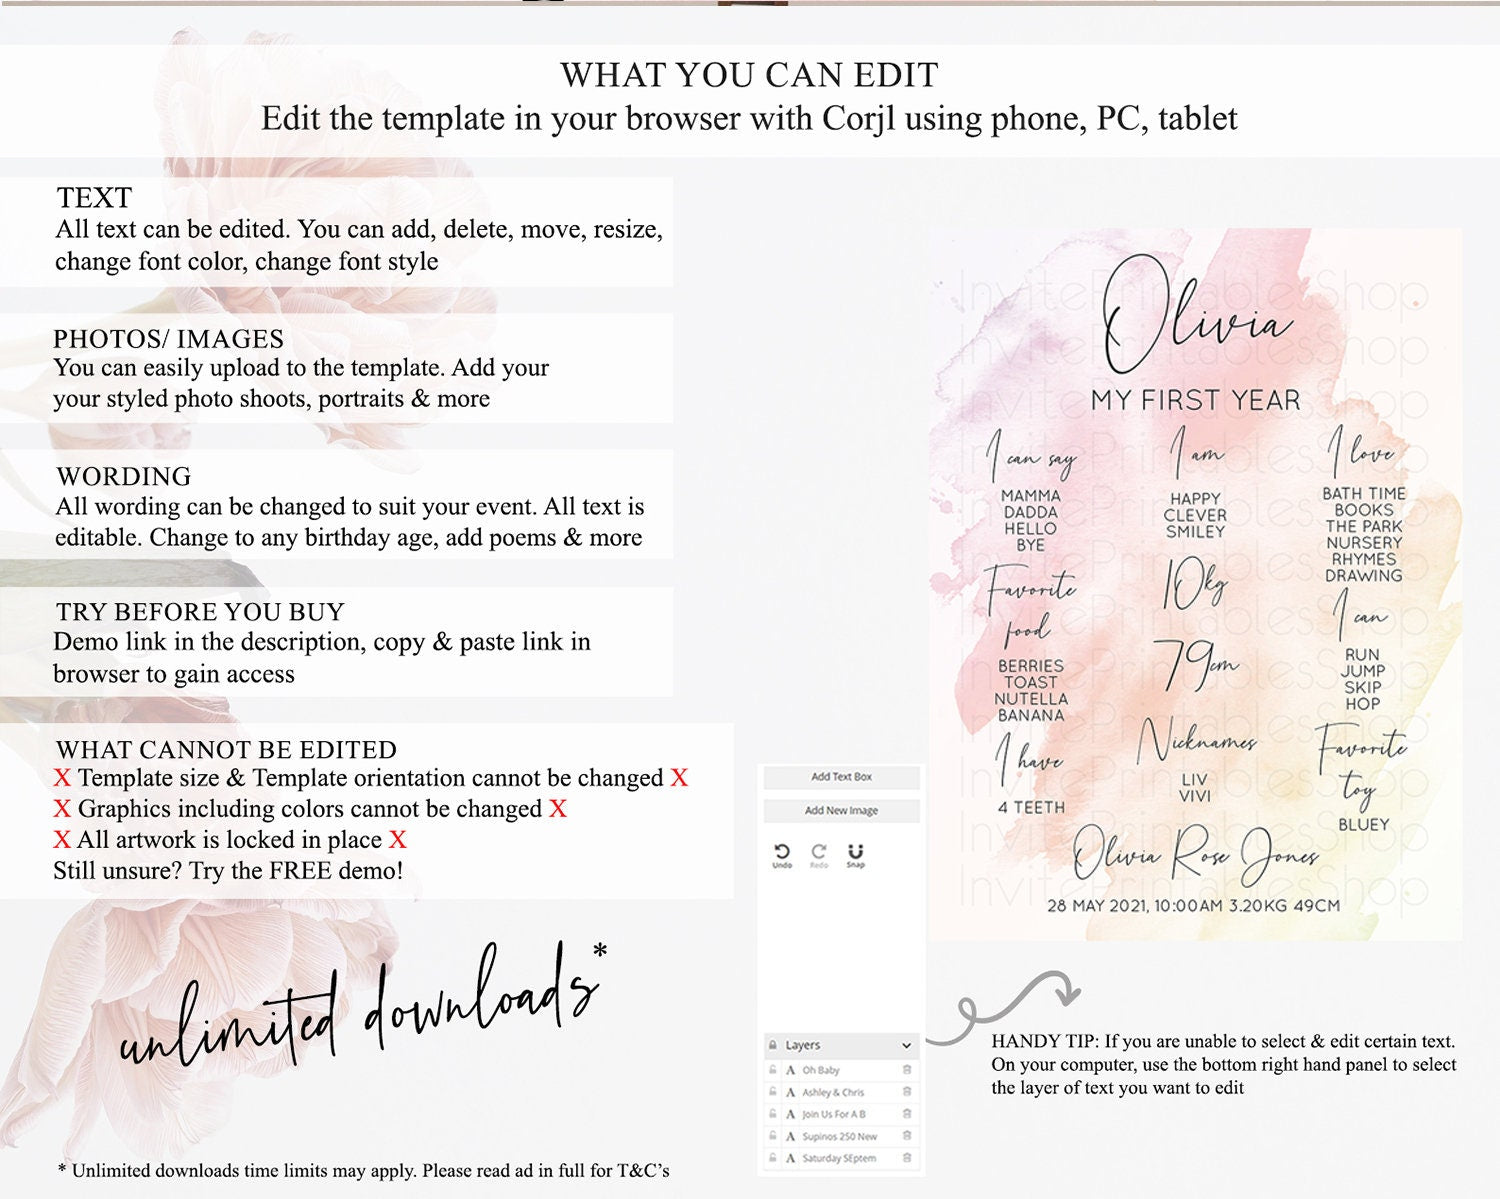 WHAT YOU CAN EDIT
Edit the template in your browser with Corjl using phone, PC, tablet
TEXT
All text can be edited. You can add, delete, move, resize,
change font color, change font style
PHOTOS/ IMAGES
You can easily upload to the template. Add your
your styled photo shoots, portraits & more
WORDING
All wording can be changed to suit your event. All text is
editable. Change to any birthday age, add poems & more
TRY BEFORE YOU BUY
Demo link in the description, copy & paste link in
browser to gain access
WHAT CANNOT BE EDITED
X Template size & Template orientation cannot be changed X
X Graphics including colors cannot be changed X
X All artwork is locked in place X
Still unsure? Try the FREE demo!
unlimited downloads*
* Unlimited downloads time limits may apply. Please read ad in full for T&C's
Add Text Box
Add New Image
Undo Redo Snap
Layers
A Oh Baby
A Ashley & Chris
A Join Us For A B
A Supinos 250 New
A Saturday SEptem
Olivia
MY FIRST YEAR
I can say
MAMMA
DADDA
HELLO
BYE
Favorite
food
BERRIES
TOAST
NUTELLA
BANANA
I have
4 TEETH
I am
HAPPY
CLEVER
SMILEY
10kg
79cm
Nicknames
LIV
VIVI
I love
BATH TIME
BOOKS
THE PARK
NURSERY
RHYMES
DRAWING
I can
RUN
JUMP
SKIP
HOP
Favorite
toy
BLUEY
Olivia Rose Jones
28 MAY 2021, 10:00AM 3.20KG 49CM
InvitePrintablesShop
InvitePrintablesShop
InvitePrintablesShop
InvitePrintablesShop
InvitePrintablesShop
InvitePrintablesShop
InvitePrintablesShop
InvitePrintablesShop
InvitePrintablesShop
InvitePrintablesShop
InvitePrintablesShop
InvitePrintablesShop
HANDY TIP: If you are unable to select & edit certain text.
On your computer, use the bottom right hand panel to select
the layer of text you want to edit